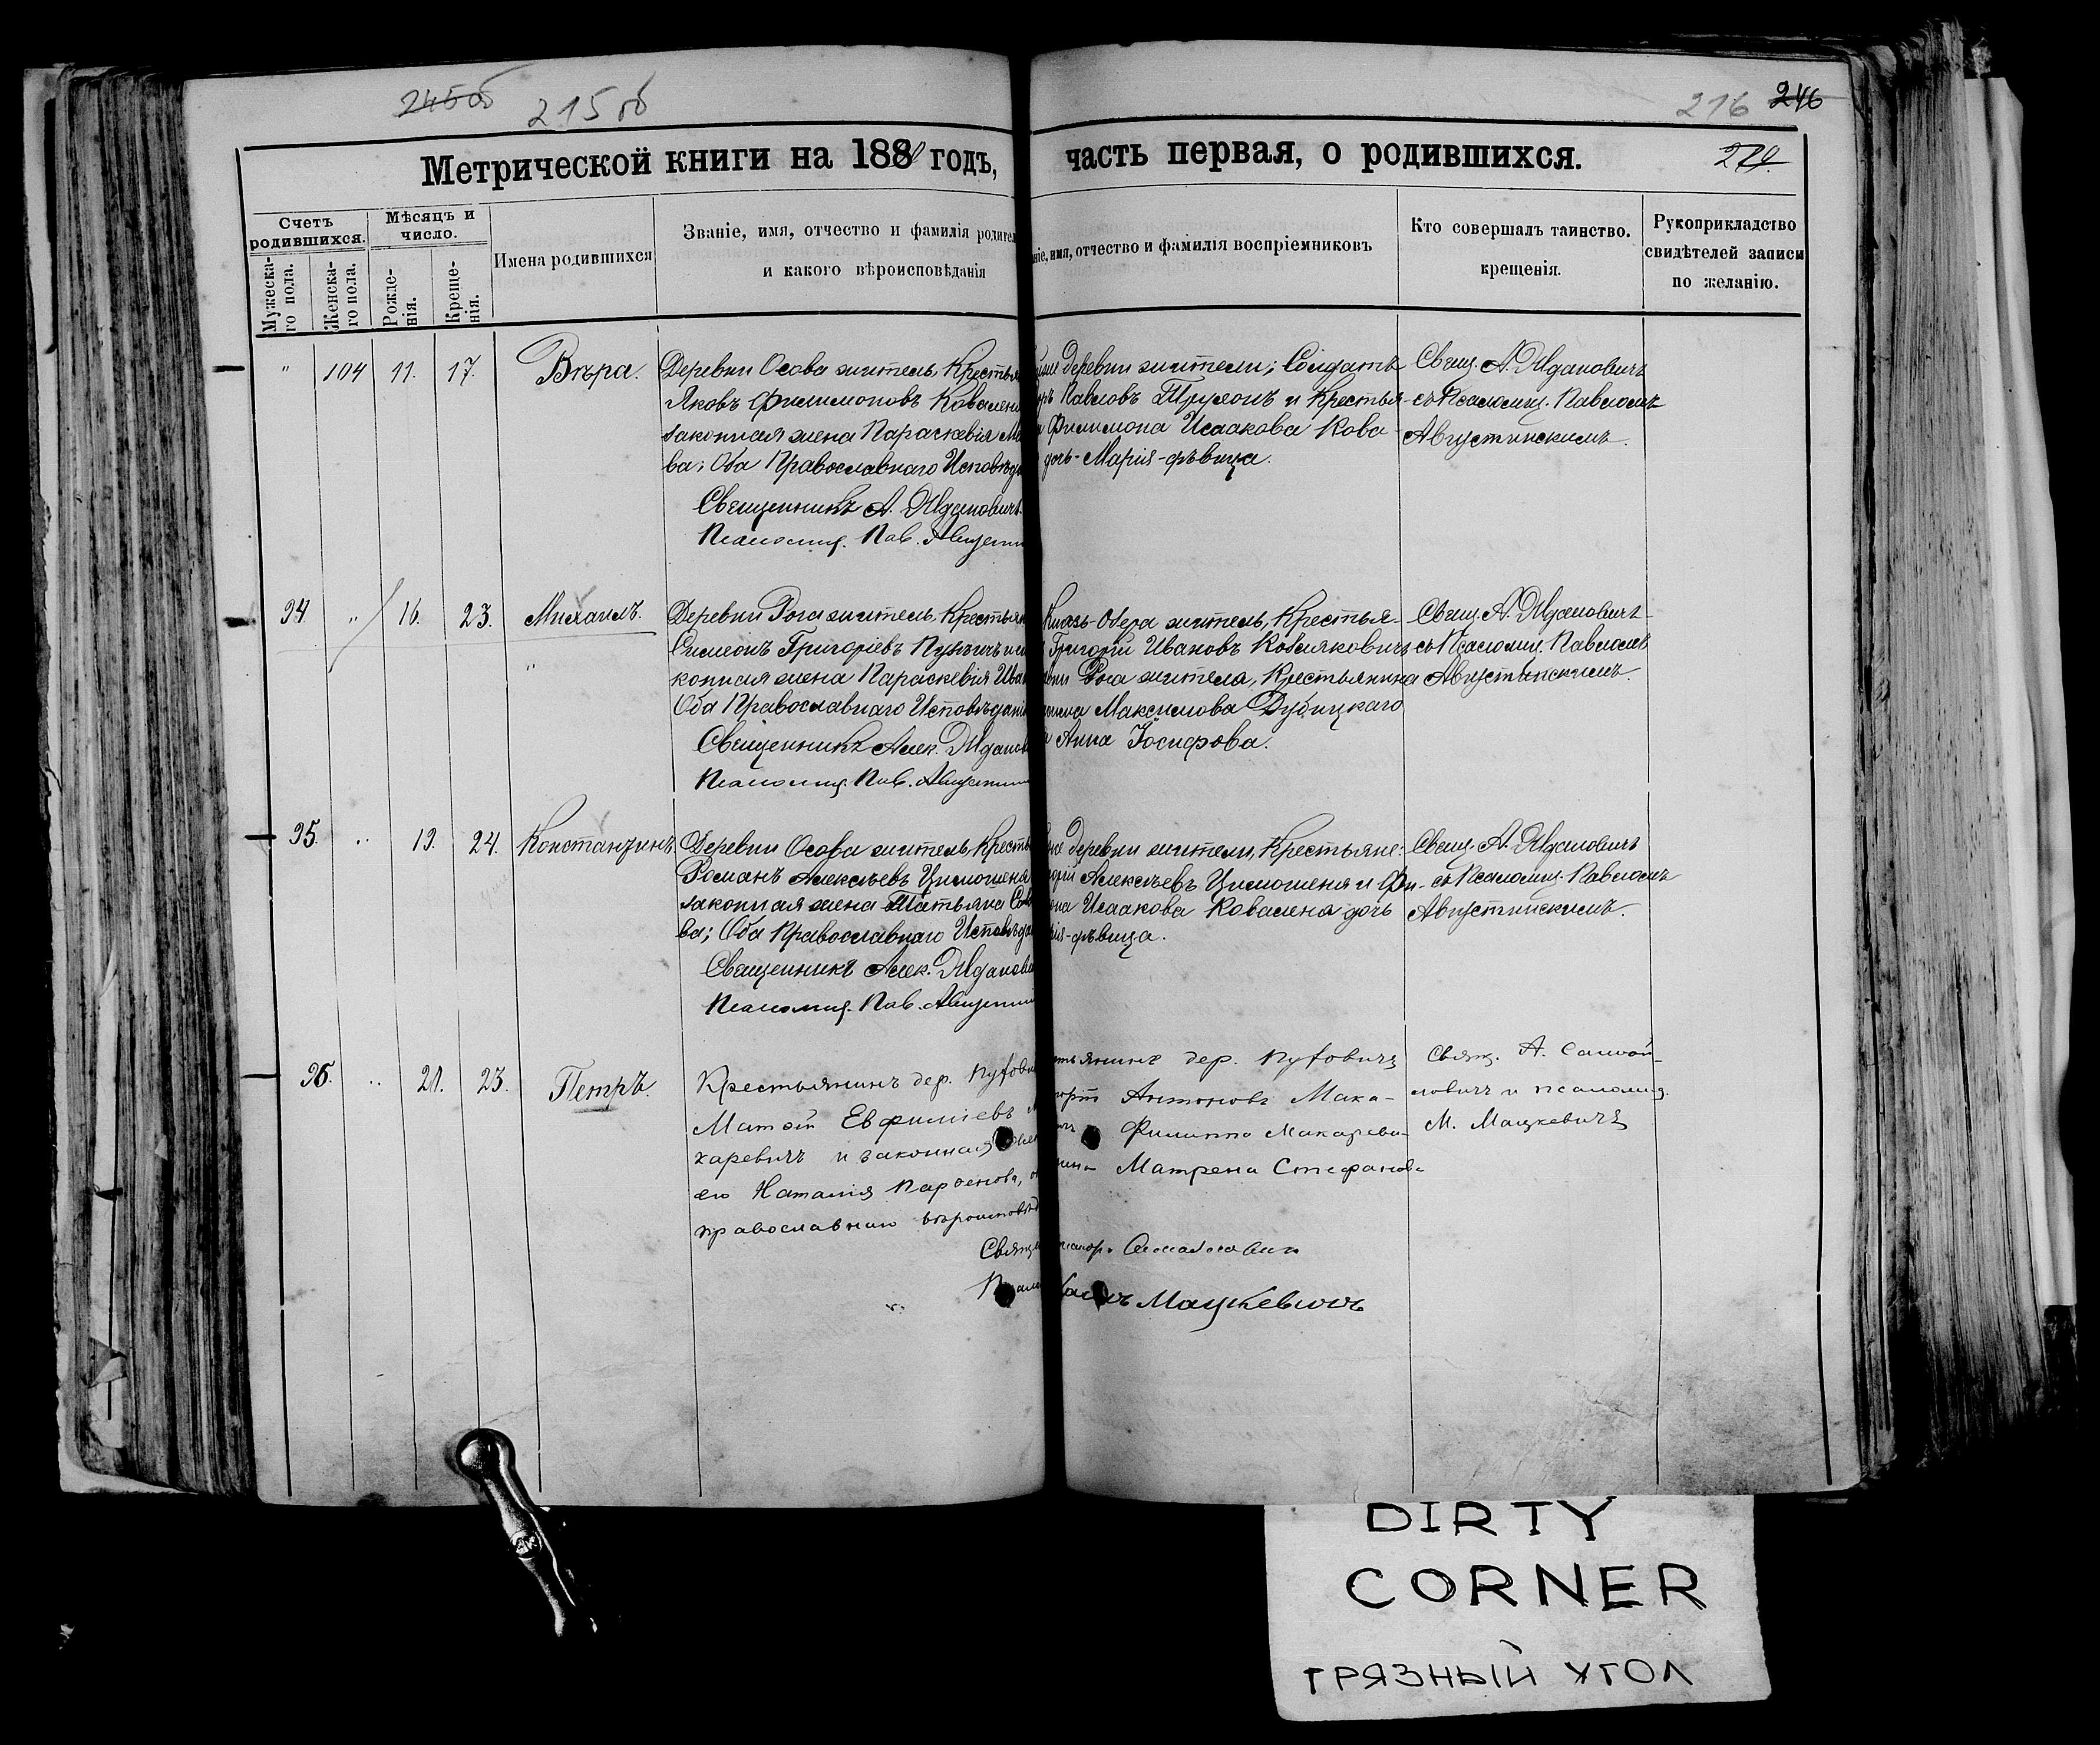 245 об 215 об
216 246
Метрической книги на 188 годъ, часть первая, о родившихся.
Счетъ родившихся.
Мужеска-го пола.
Женска-го пола.
Мѣсяцъ и число.
Рожде-нія.
Креще-нія.
Имена родившихся
Званіе, имя, отчество и фамилія родител
и какого вѣроисповѣданія
ніе, имя, отчество и фамилія воспріемниковъ
Кто совершалъ таинство.
крещенія.
Рукоприкладство
свидѣтелей записи
по желанію.
" 104 11. 17. Вѣра.
Деревни Осова житель, Крестья
Яковъ Филимоновъ Ковален
законная жена Параскевія Ма
ва; Оба Православнаго Исповѣда
Священникъ А. Ждановичъ
Псаломщ. Пав. Августин
деревни жители; Солдатъ
Павловъ и Крестья-
Филимона Исаакова Кова
дочь-Марія-дѣвица.
Свящ. А. Ждановичъ
съ Псаломщ. Павломъ
Августинскимъ.
94. " 16. 23. Михаилъ.
Деревни Рога житель, Крестьян
Симеонъ Григоріевъ
конная жена Параскевія Ива
Оба Православнаго Исповѣдані
Священникъ Алек. Жданов
Псаломщ. Пав. Августин
Князь-Озера житель, Крестья-
Григорій Ивановъ и
Рога жителя, Крестьянина
Максимова Дубицкаго
Анна Іосифова.
Свящ. А. Ждановичъ
съ Псаломщ. Павломъ
Августинскимъ.
95. " 19. 24. Константинъ
Деревни Осова житель, Кресть
Романъ Алексѣевъ Цимошеня
законная жена Татьяна
ва; Оба Православнаго Исповѣда
Священникъ Алек. Жданови
Псаломщ. Пав. Августин
деревни жители, Крестьяне:
Алексѣевъ Цимошеня и Фи-
она Исаакова Ковалена дочь
-дѣвица.
Свящ. А. Ждановичъ
съ Псаломщ. Павломъ
Августинскимъ.
96. " 21. 23. Петръ.
Крестьянинъ дер.
Матѳій Евфиміевъ
каревичъ и законная
его Наталія Парѳенова,
православнаго вѣроисповѣд
дер.
Антоновъ Мака-
Филиппа Макареви-
Матрена Стефанова
Свящ. А. Самой-
ловичъ и псаломщ.
М. Мацкевичъ
Мацкевичъ
DIRTY
CORNER
ГРЯЗНЫЙ УГОЛ